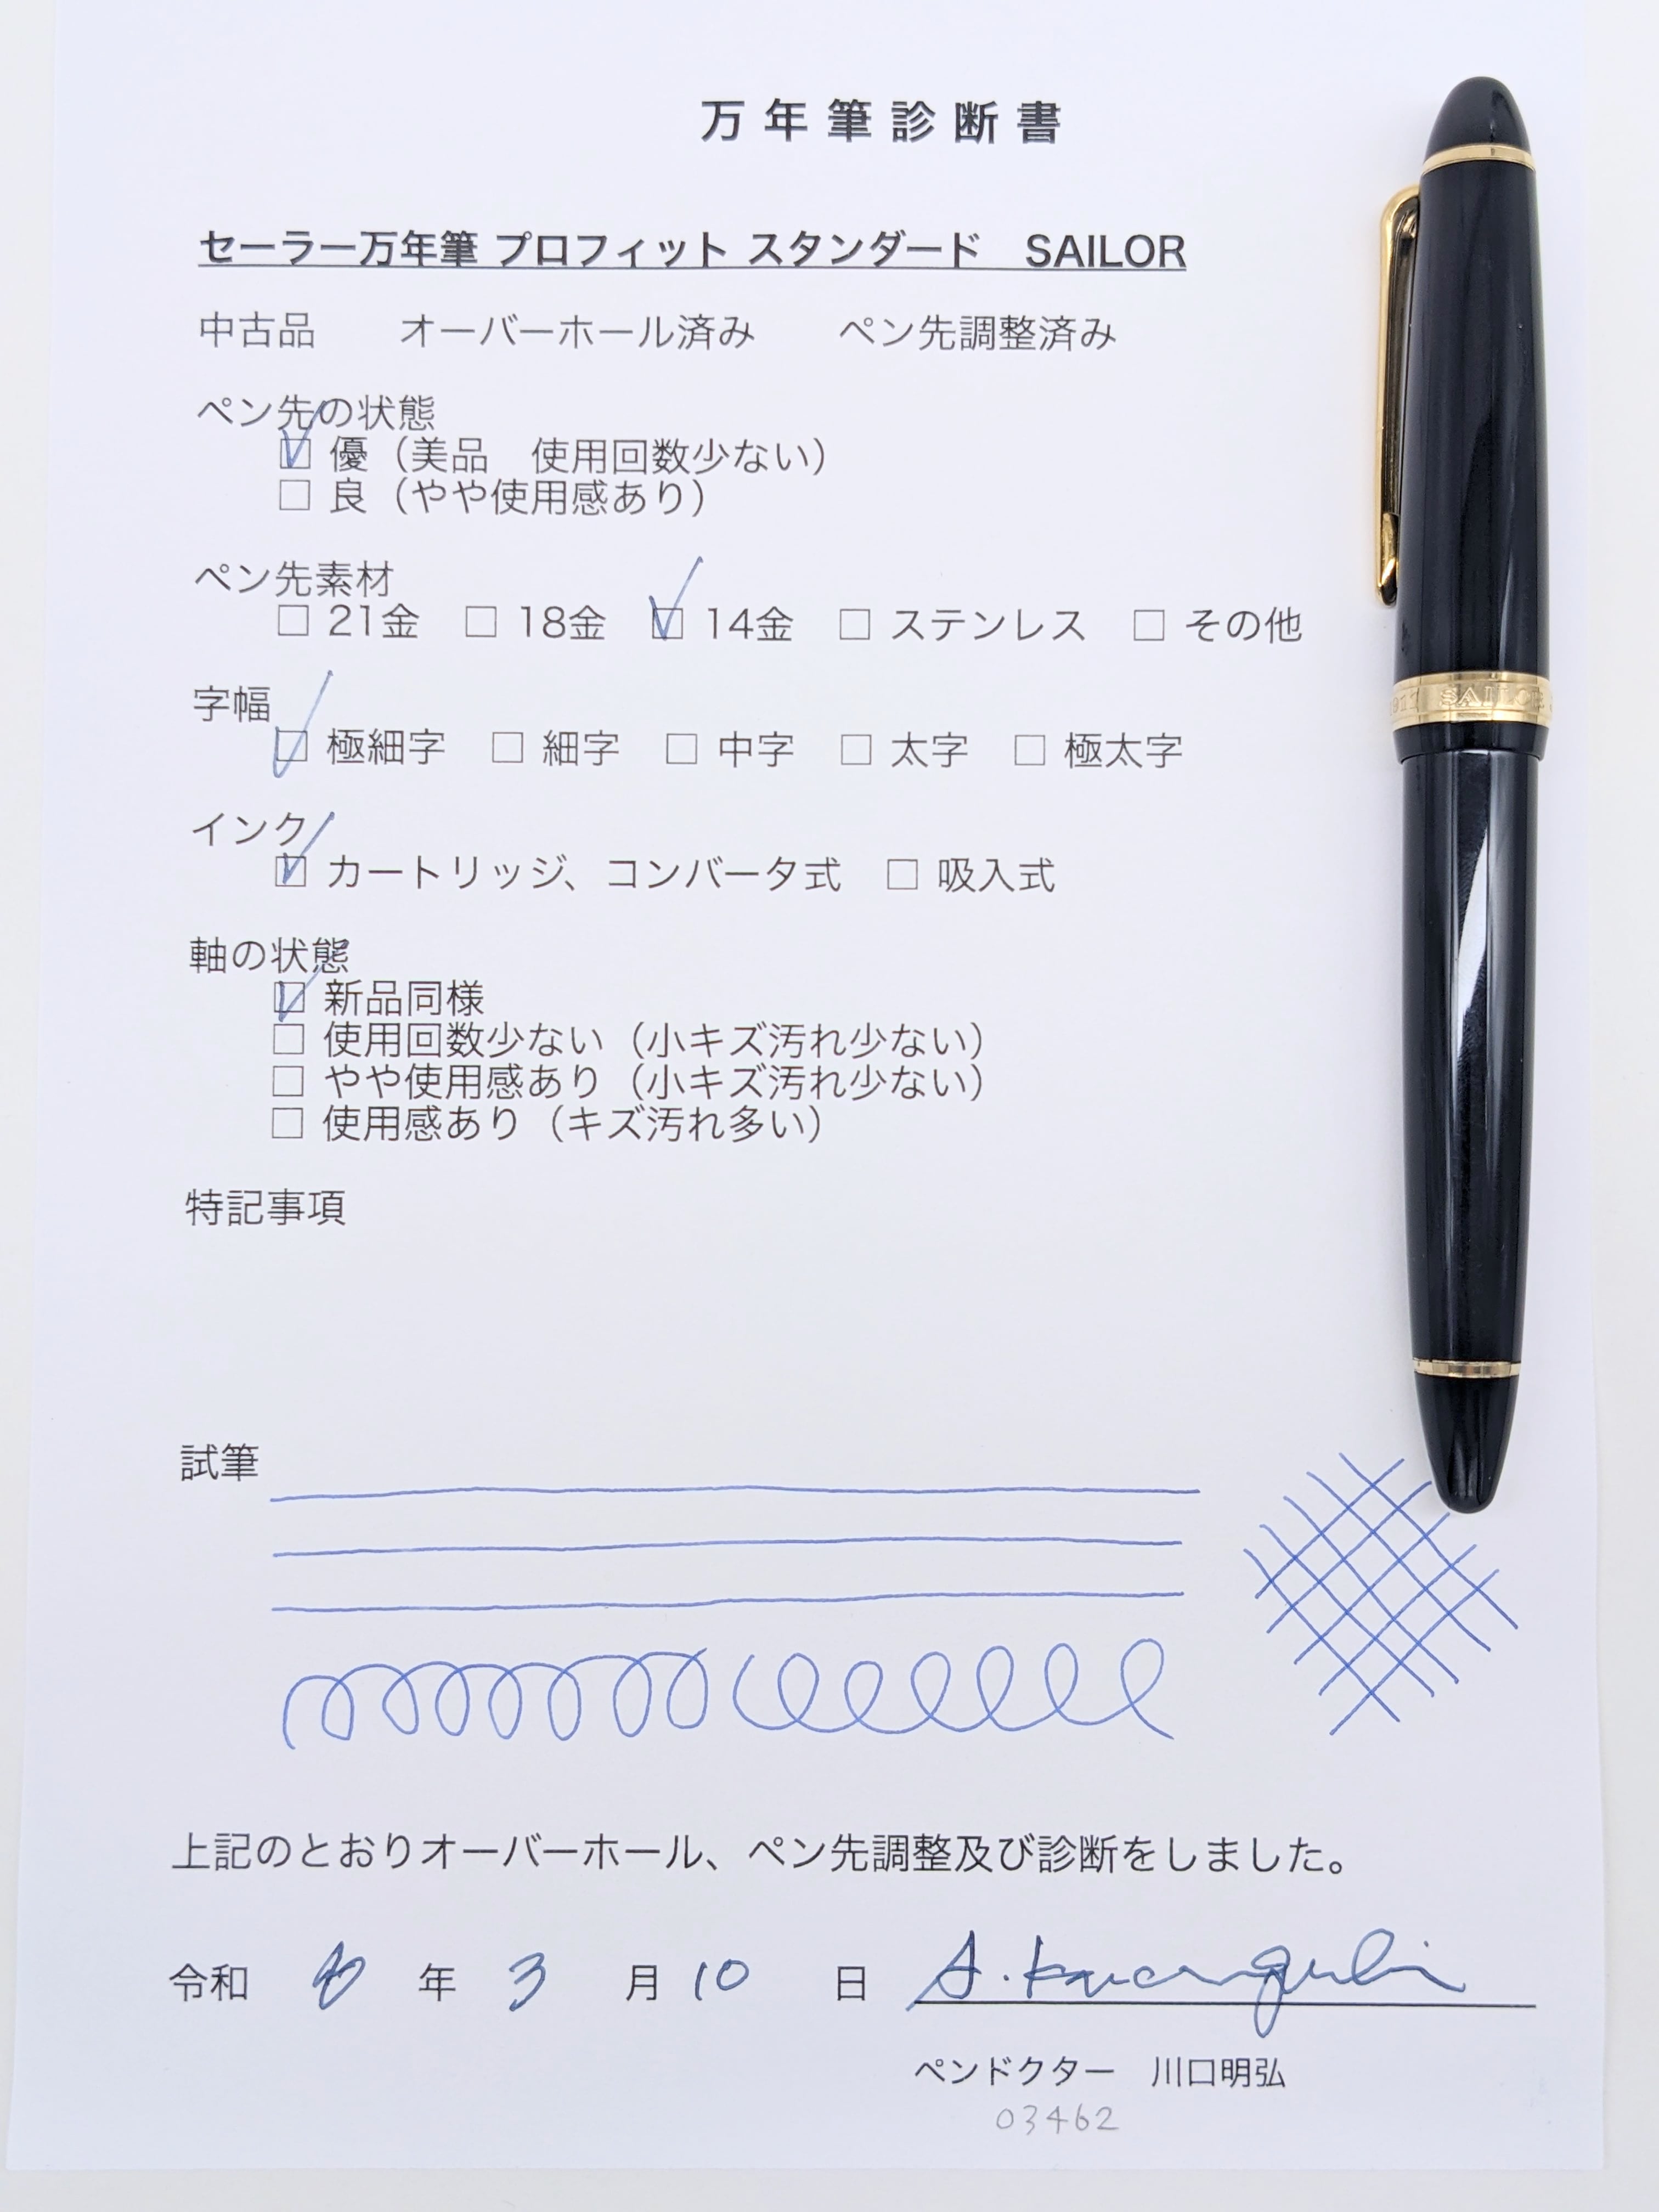 万年筆診断書
セーラー万年筆 プロフィット スタンダード　SAILOR
中古品　オーバーホール済み　ペン先調整済み
ペン先の状態
☑ 優（美品　使用回数少ない）
□ 良（やや使用感あり）
ペン先素材
□ 21金 □ 18金 ☑ 14金 □ ステンレス □ その他
字幅
☑ 極細字 □ 細字 □ 中字 □ 太字 □ 極太字
インク
☑ カートリッジ、コンバータ式 □ 吸入式
軸の状態
☑ 新品同様
□ 使用回数少ない（小キズ汚れ少ない）
□ やや使用感あり（小キズ汚れ少ない）
□ 使用感あり（キズ汚れ多い）
特記事項
試筆
上記のとおりオーバーホール、ペン先調整及び診断をしました。
令和 年 3 月 10 日 A. Kawaguchi
ペンドクター　川口明弘
03462
SAILOR